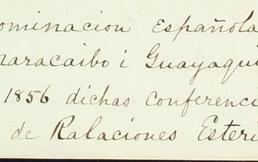 ominacion Española
aracaibo i Guayaqui
1856 dichas conferenci
de Ralaciones Esteri